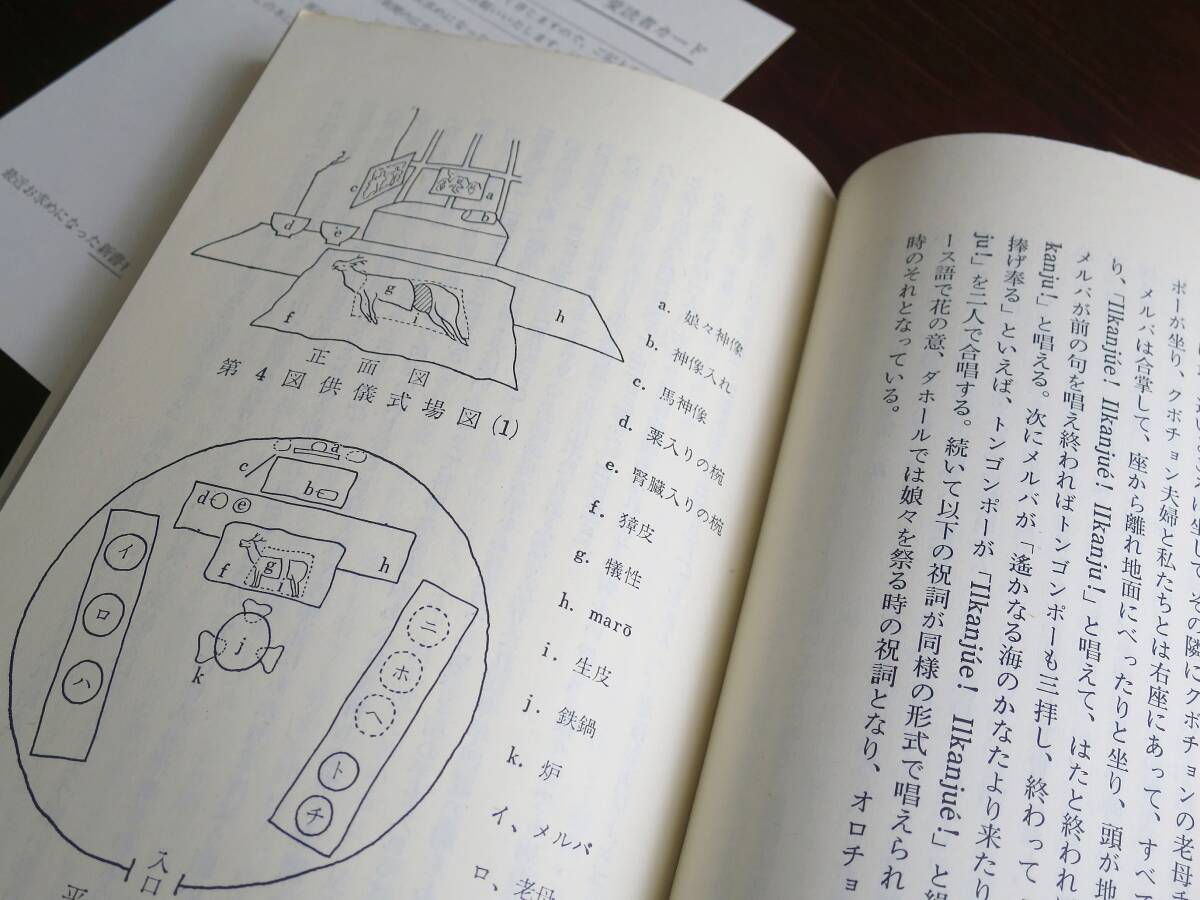 愛読者カード
最近お求めになった新書
c
a
b
d
e
g
i
f
h
正面図
第4図供儀式場図(1)
a
c
b
d
e
h
f
g
イ
ロ
ハ
j
k
ニ
ホ
ヘ
ト
チ
入口
平
a. 娘々神像
b. 神像入れ
c. 馬神像
d. 粟入りの椀
e. 腎臓入りの椀
f. 獐皮
g. 犠性
h. marō
i. 生皮
j. 鉄鍋
k. 炉
イ、メルバ
ロ、老母
ポーが坐り、クボチョン夫婦と私たちとは右座にあって、すべて
メルバは合掌して、座から離れ地面にべったりと坐り、頭が地
り、「Ilkanjúe! Ilkanjué! Ilkanju!」と唱えて、はたと終われ
メルバが前の句を唱え終わればトンゴンポーも三拝し、終わって
kanju!」と唱える。次にメルバが「遙かなる海のかなたより来たり
捧げ奉る」といえば、トンゴンポーが「Ilkanjúe! Ilkanjué!」と
ju!」を二人で合唱する。続いて以下の祝詞が同様の形式で唱えられ
ース語で花の意、ダホールでは娘々を祭る時の祝詞となり、オロチョ
時のそれとなっている。